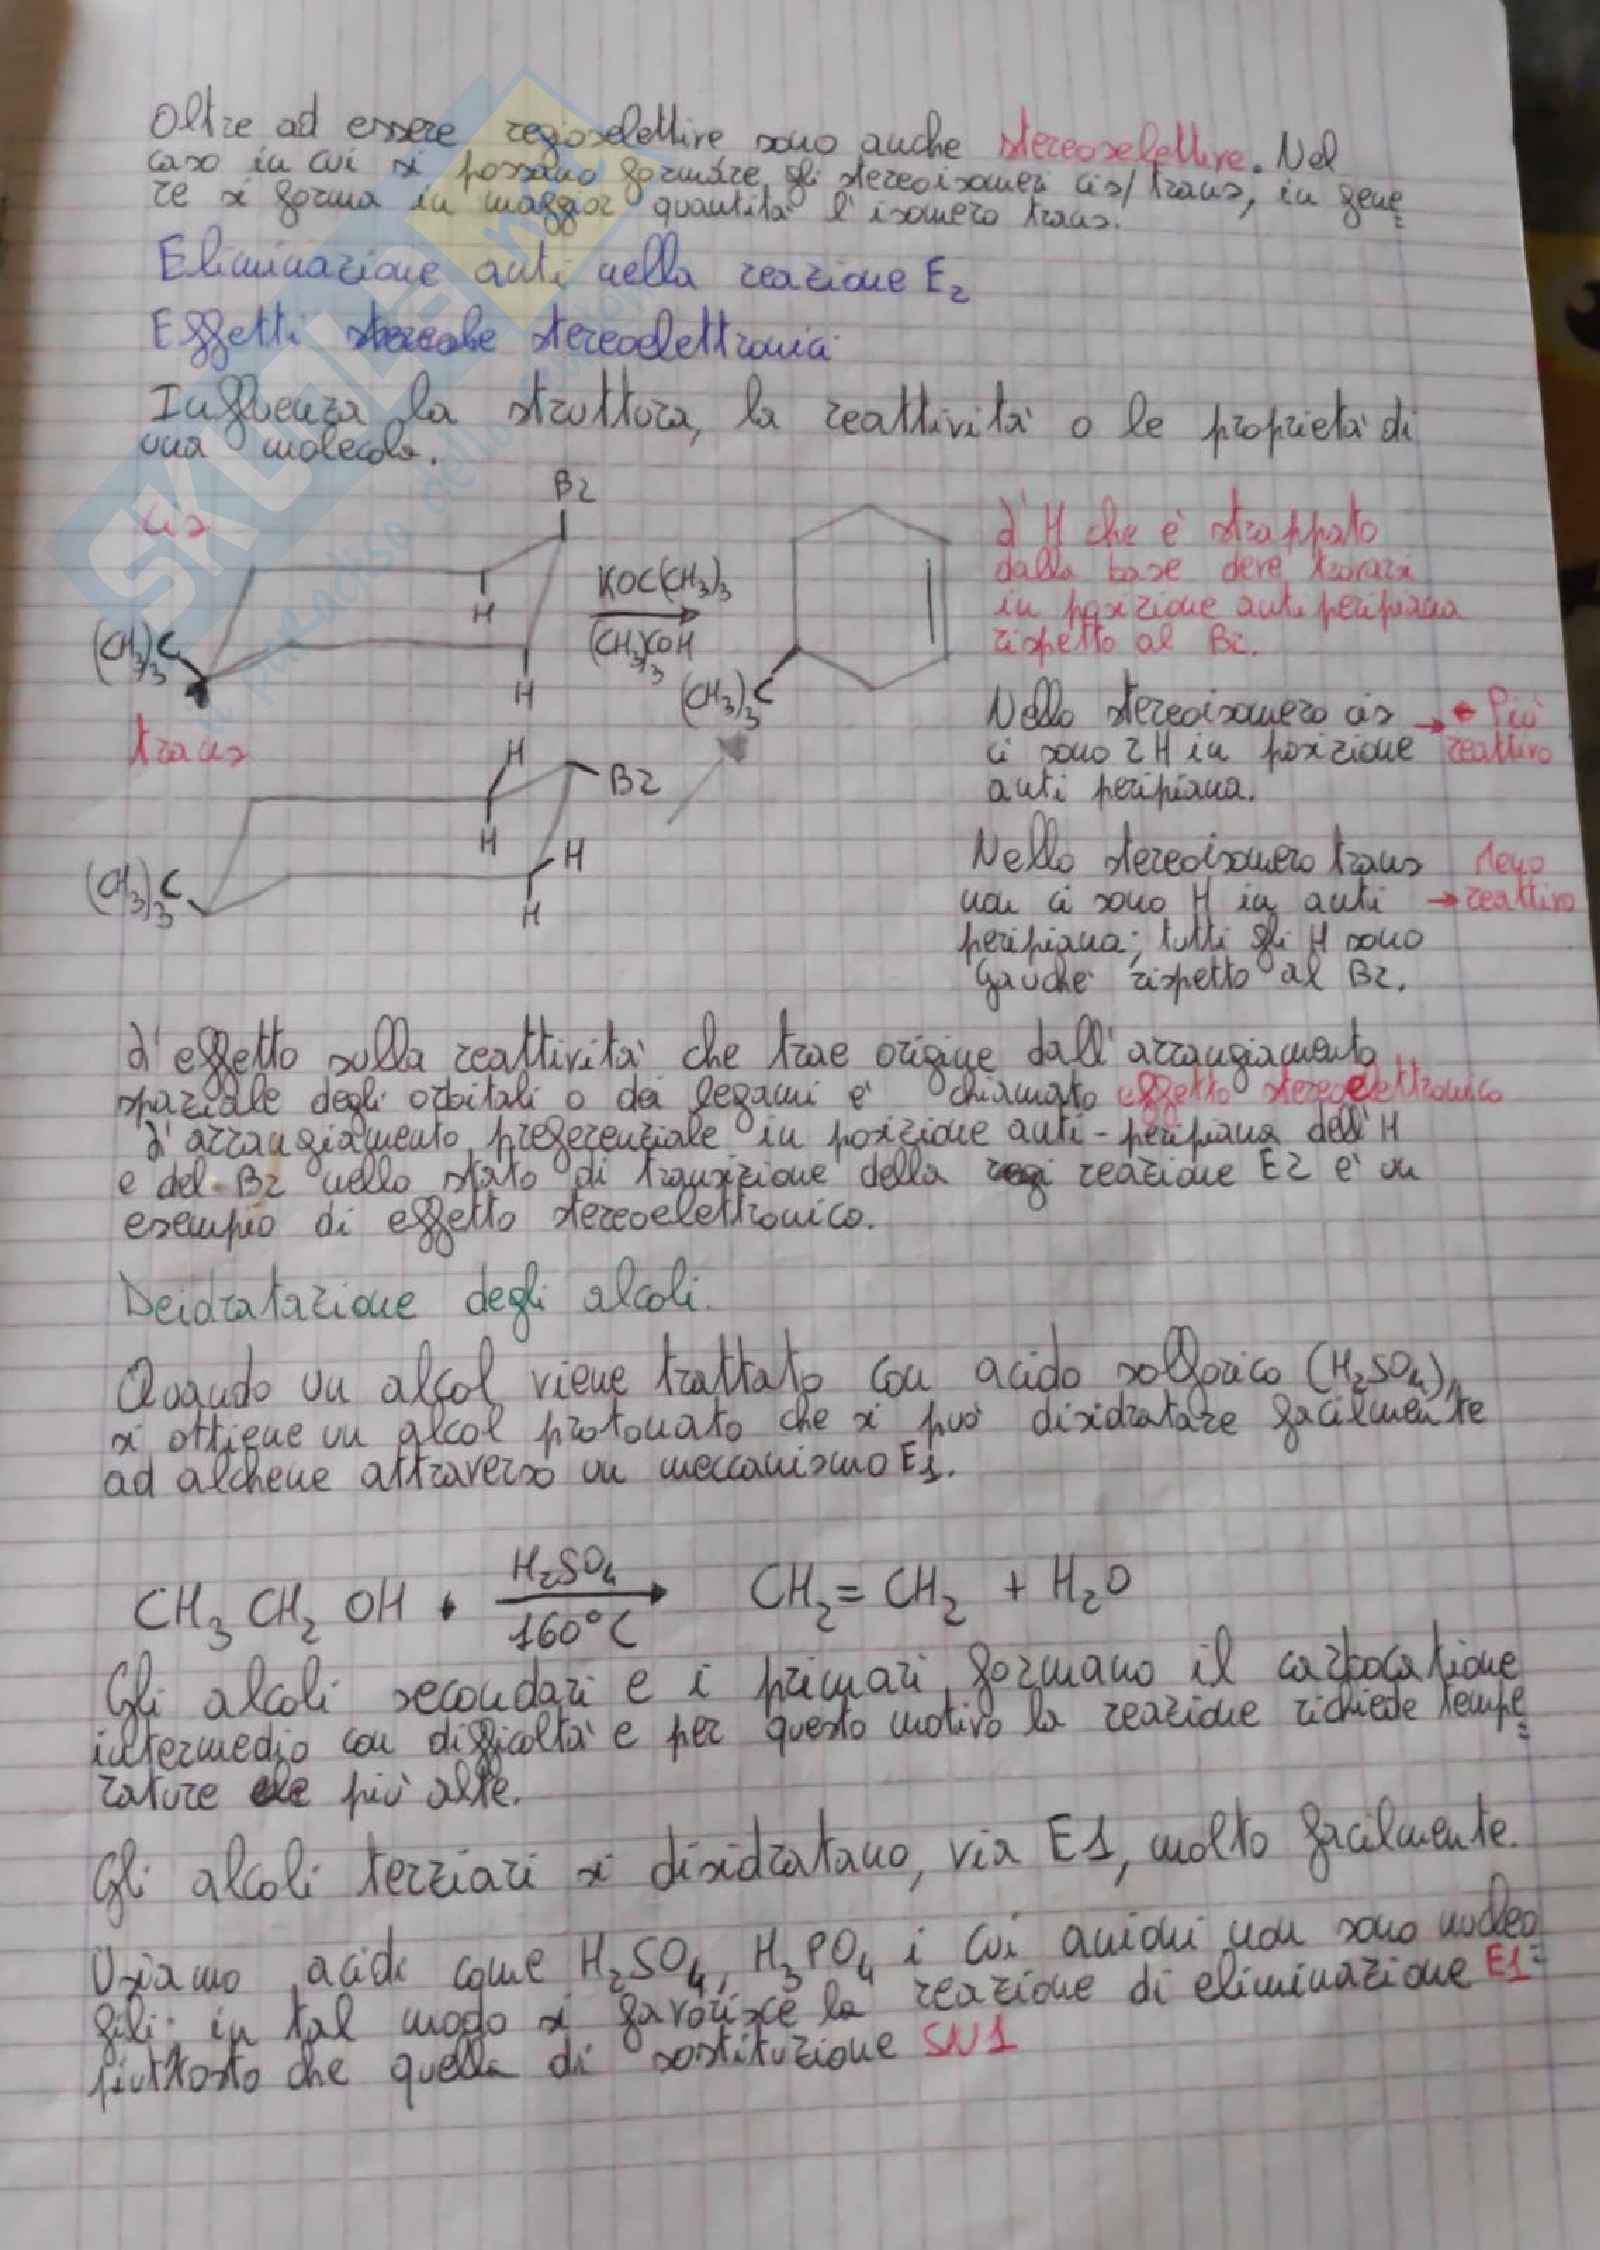 Oltre ad essere regioselettive sono anche stereoselettive. Nel
caso in cui si possano formare gli stereoisomeri cis/trans, in gene=
re si forma in maggior quantità l'isomero trans.
Eliminazione anti nella reazione E2
Effetti stereoelettronici
Influenza la struttura, la reattività o le proprietà di
una molecola.
cis
Br
H
H
(CH3)3C
KOC(CH3)3
(CH3)3COH
(CH3)3C
L'H che è strappato
dalla base deve trovarsi
in posizione anti peripiana
rispetto al Br.
Nello stereoisomero cis → Più
ci sono 2 H in posizione reattivo
anti peripiana.
trans
H
Br
H
H
H
(CH3)3C
Nello stereoisomero trans Meno
non ci sono H in anti → reattivo
peripiana; tutti gli H sono
Gauche rispetto al Br.
L'effetto sulla reattività che trae origine dall'arrangiamento
spaziale degli orbitali o dei legami è chiamato effetto stereoelettronico
L'arrangiamento preferenziale in posizione anti-peripiana dell'H
e del Br nello stato di transizione della reazione E2 è un
esempio di effetto stereoelettronico.
Deidratazione degli alcoli.
Quando un alcol viene trattato con acido solforico (H2SO4),
si ottiene un alcol protonato che si può disidratare facilmente
ad alchene attraverso un meccanismo E1.
CH3 CH2 OH . H2SO4 160°C → CH2 = CH2 + H2O
Gli alcoli secondari e i primari formano il carbocatione
intermedio con difficoltà e per questo motivo la reazione richiede tempe=
rature più alte.
Gli alcoli terziari si disidratano, via E1, molto facilmente.
Usiamo acidi come H2SO4, H3PO4 i cui anioni non sono nucleo=
fili; in tal modo si favorisce la reazione di eliminazione E1
piuttosto che quella di sostituzione SN1
SKUOLA.net
il paradiso dello studente